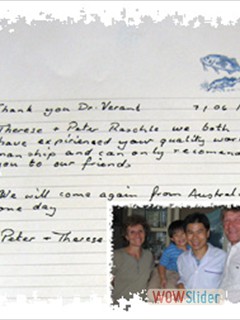 Thank you Dr. Verant 7/06/
Therese + Peter Raschle we both
have expierienced your quality wor
manship and can only recomend
you to our friends.
We will come again from Australi
one day
Peter + Therese
WOWSlider